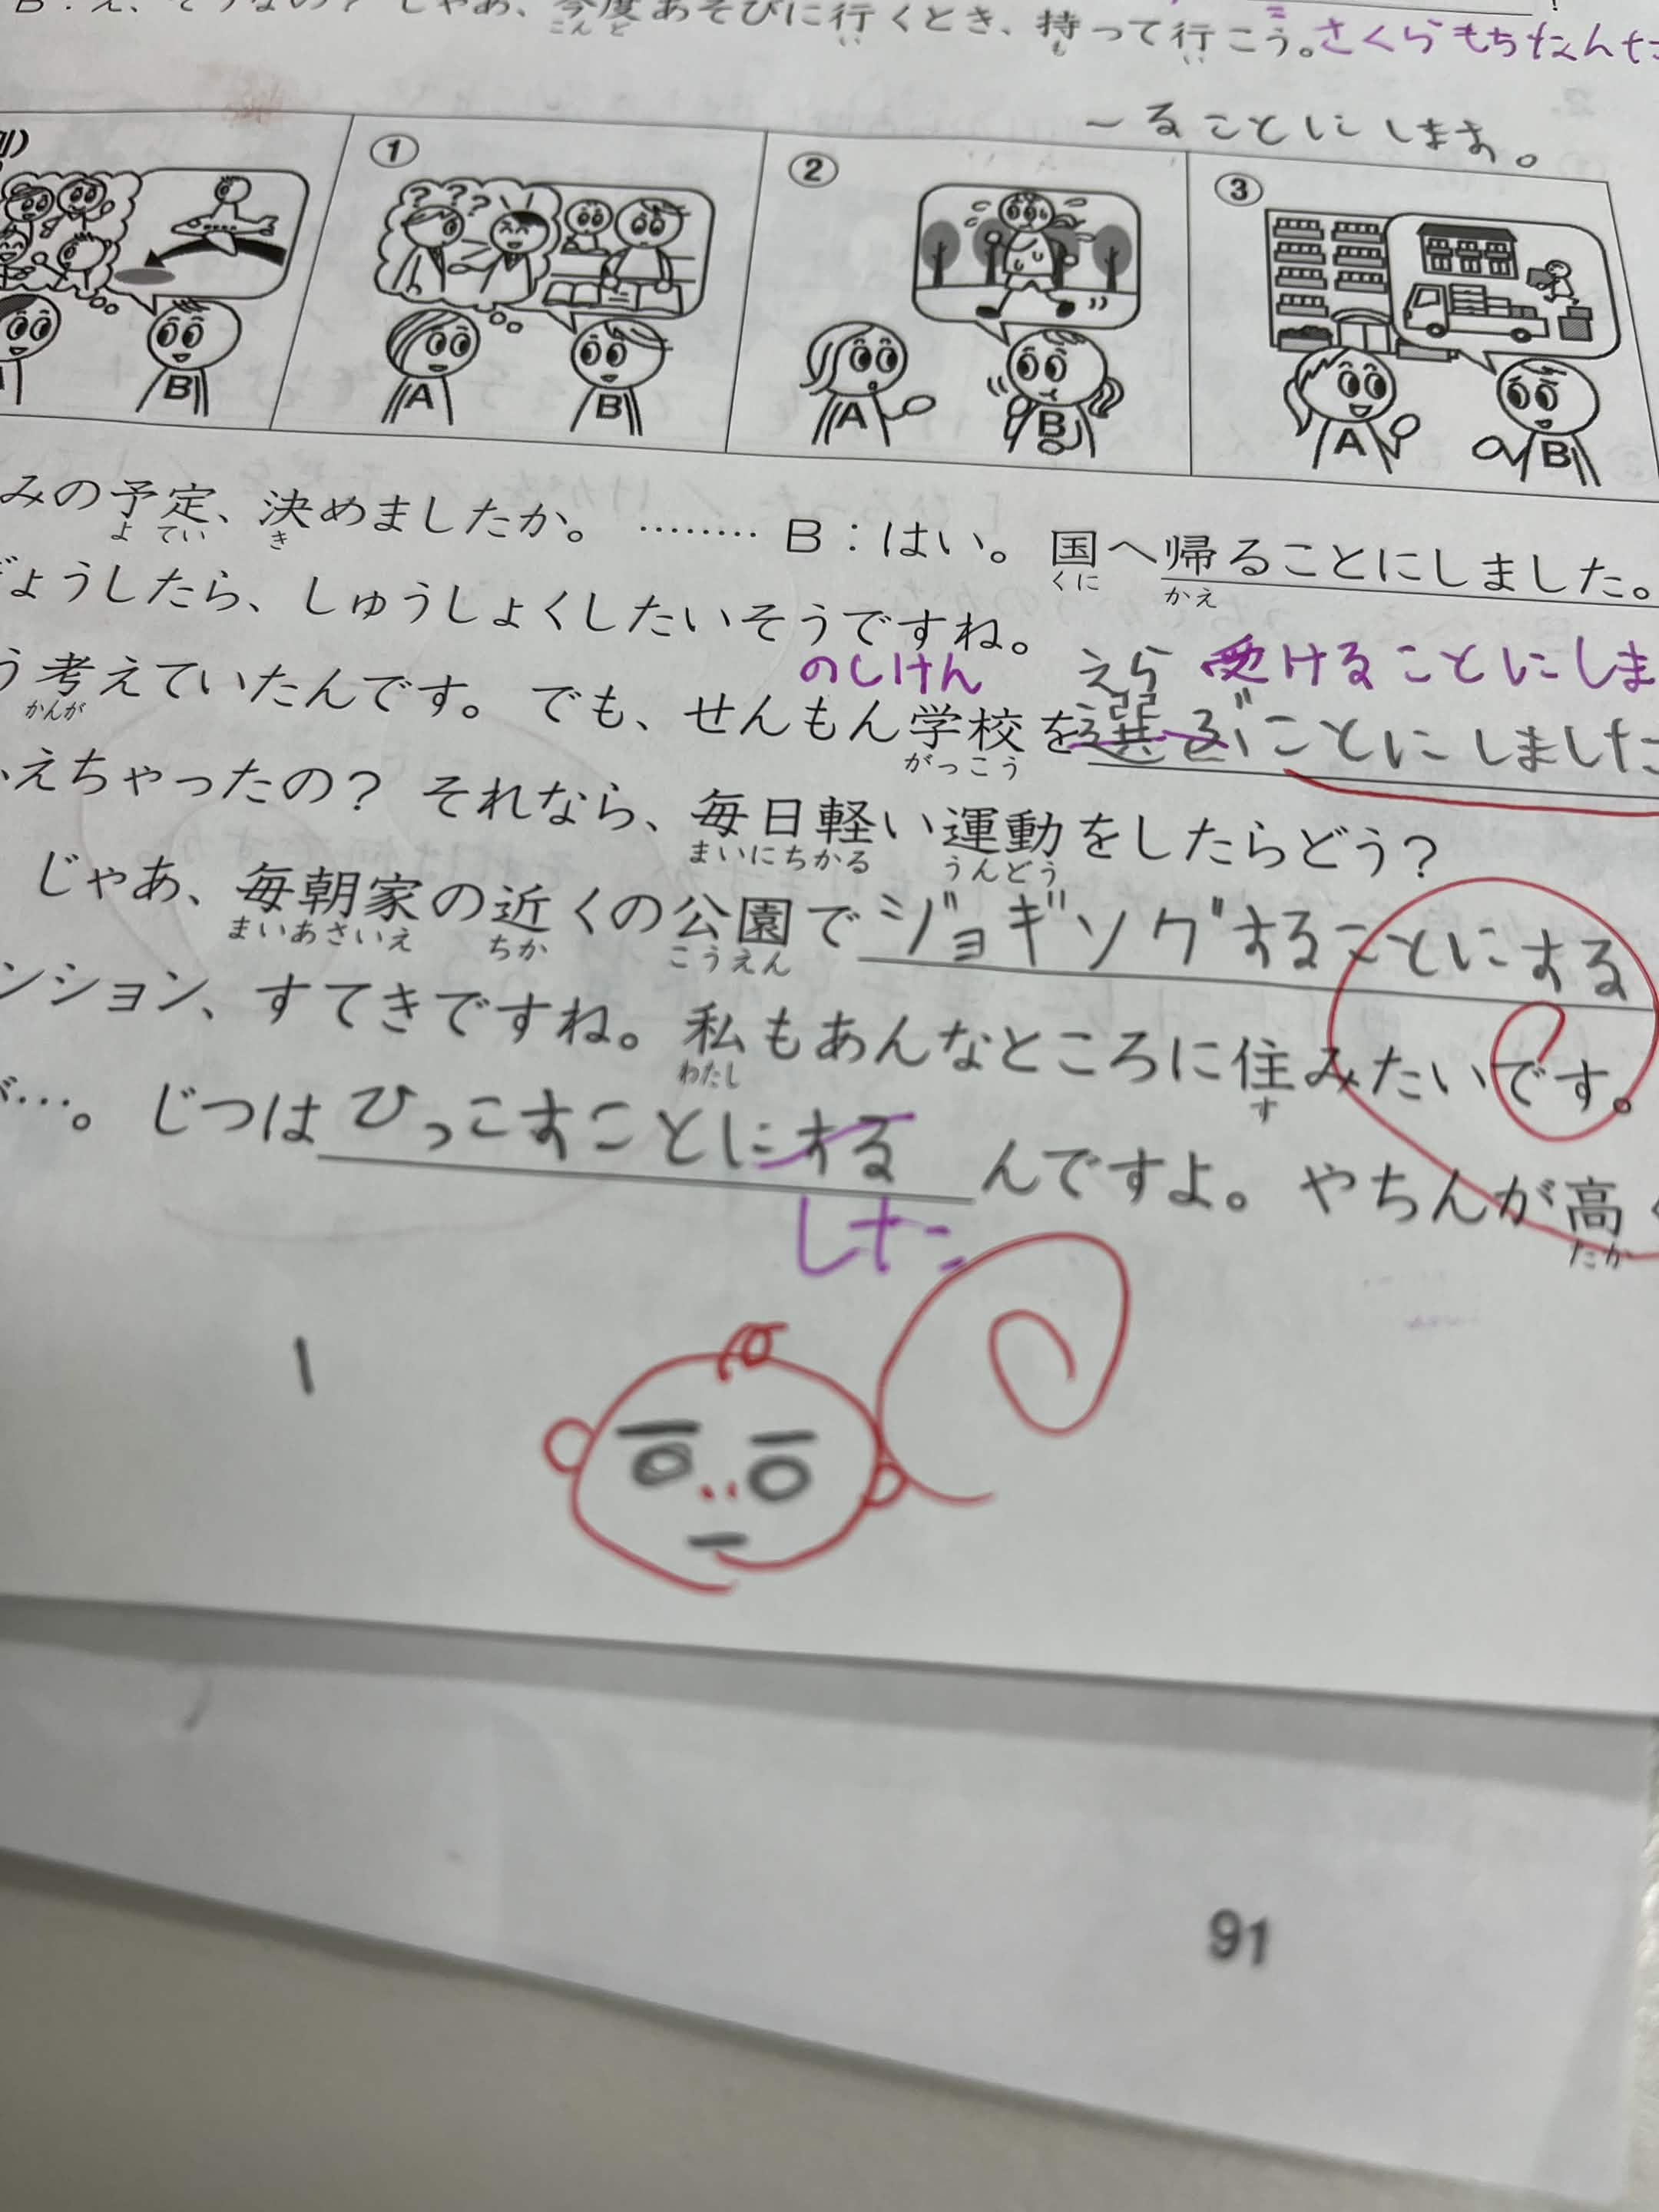 B：え、そうなの？ じゃあ、今度あそびに行くとき、持って行こう。さくらもちなんた
こんど い も い
〜ることにします。
①
②
③
B
A
B
A
B
A
B
みの予定、決めましたか。 ……… B：はい。 国へ帰ることにしました。
よてい き くに かえ
ょうしたら、しゅうしょくしたいそうですね。
のしけん えら 受けることにしま
う考えていたんです。でも、せんもん学校を選ぶことにしました
かんが がっこう
えちゃったの？ それなら、毎日軽い運動をしたらどう？
まいにちかる うんどう
じゃあ、毎朝家の近くの公園でジョギングすることにする
まいあさいえ ちか こうえん
ンション、すてきですね。私もあんなところに住みたいです。
わたし す
が…。じつはひっこすことにするんですよ。やちんが高く
たか
した
1
91